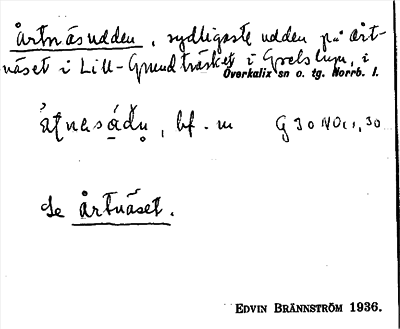 Årtnäsudden, sydligaste udden på årt-
näset i Lill-Grundträsket i Grelsbyn, i
Överkalix sn o. tg. Norrb. l.
bf. m G 30 NO 11, 30
Se årtnäset.
EDVIN BRÄNNSTRÖM 1936.